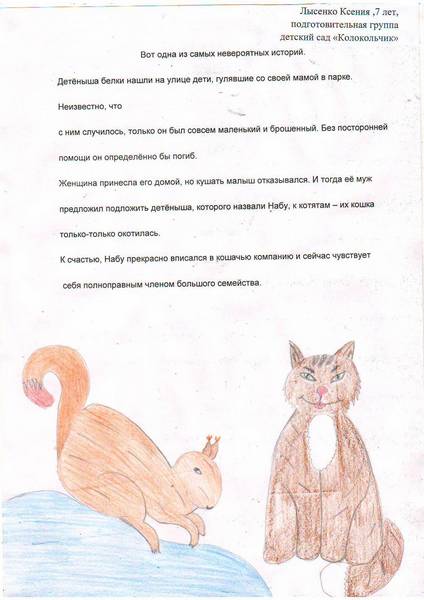 Лысенко Ксения ,7 лет,
подготовительная группа
детский сад «Колокольчик»
Вот одна из самых невероятных историй.
Детёныша белки нашли на улице дети, гулявшие со своей мамой в парке.
Неизвестно, что
с ним случилось, только он был совсем маленький и брошенный. Без посторонней
помощи он определённо бы погиб.
Женщина принесла его домой, но кушать малыш отказывался. И тогда её муж
предложил подложить детёныша, которого назвали Набу, к котятам – их кошка
только-только окотилась.
К счастью, Набу прекрасно вписался в кошачью компанию и сейчас чувствует
себя полноправным членом большого семейства.